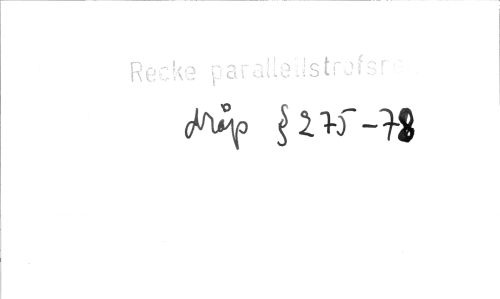 Recke parallellstrofsre
dråp § 275-78